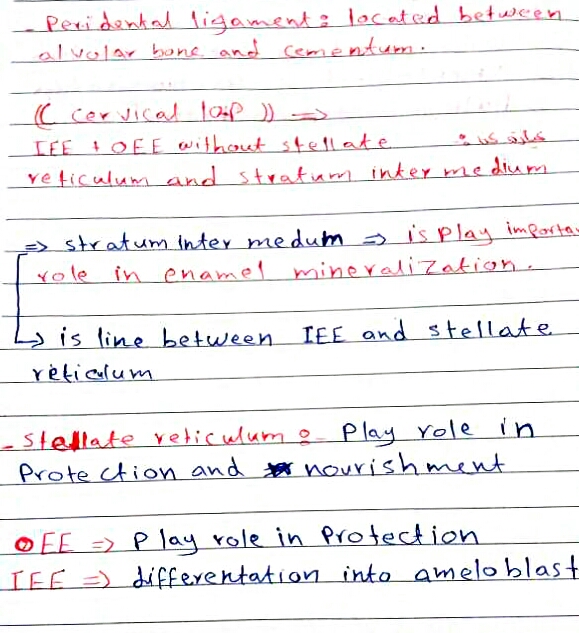 - Peridental ligament : located between
alvolar bone and cementum.
(( cervical loop )) =>
IEE + OEE without stellate
reticulum and stratum inter medium
=> stratum inter medum => is play importan
role in enamel mineralization.
↳ is line between IEE and stellate
reticulum
- Stellate reticulum : Play role in
Protection and nourishment
OEE => Play role in Protection
IEE => differentation into ameloblast